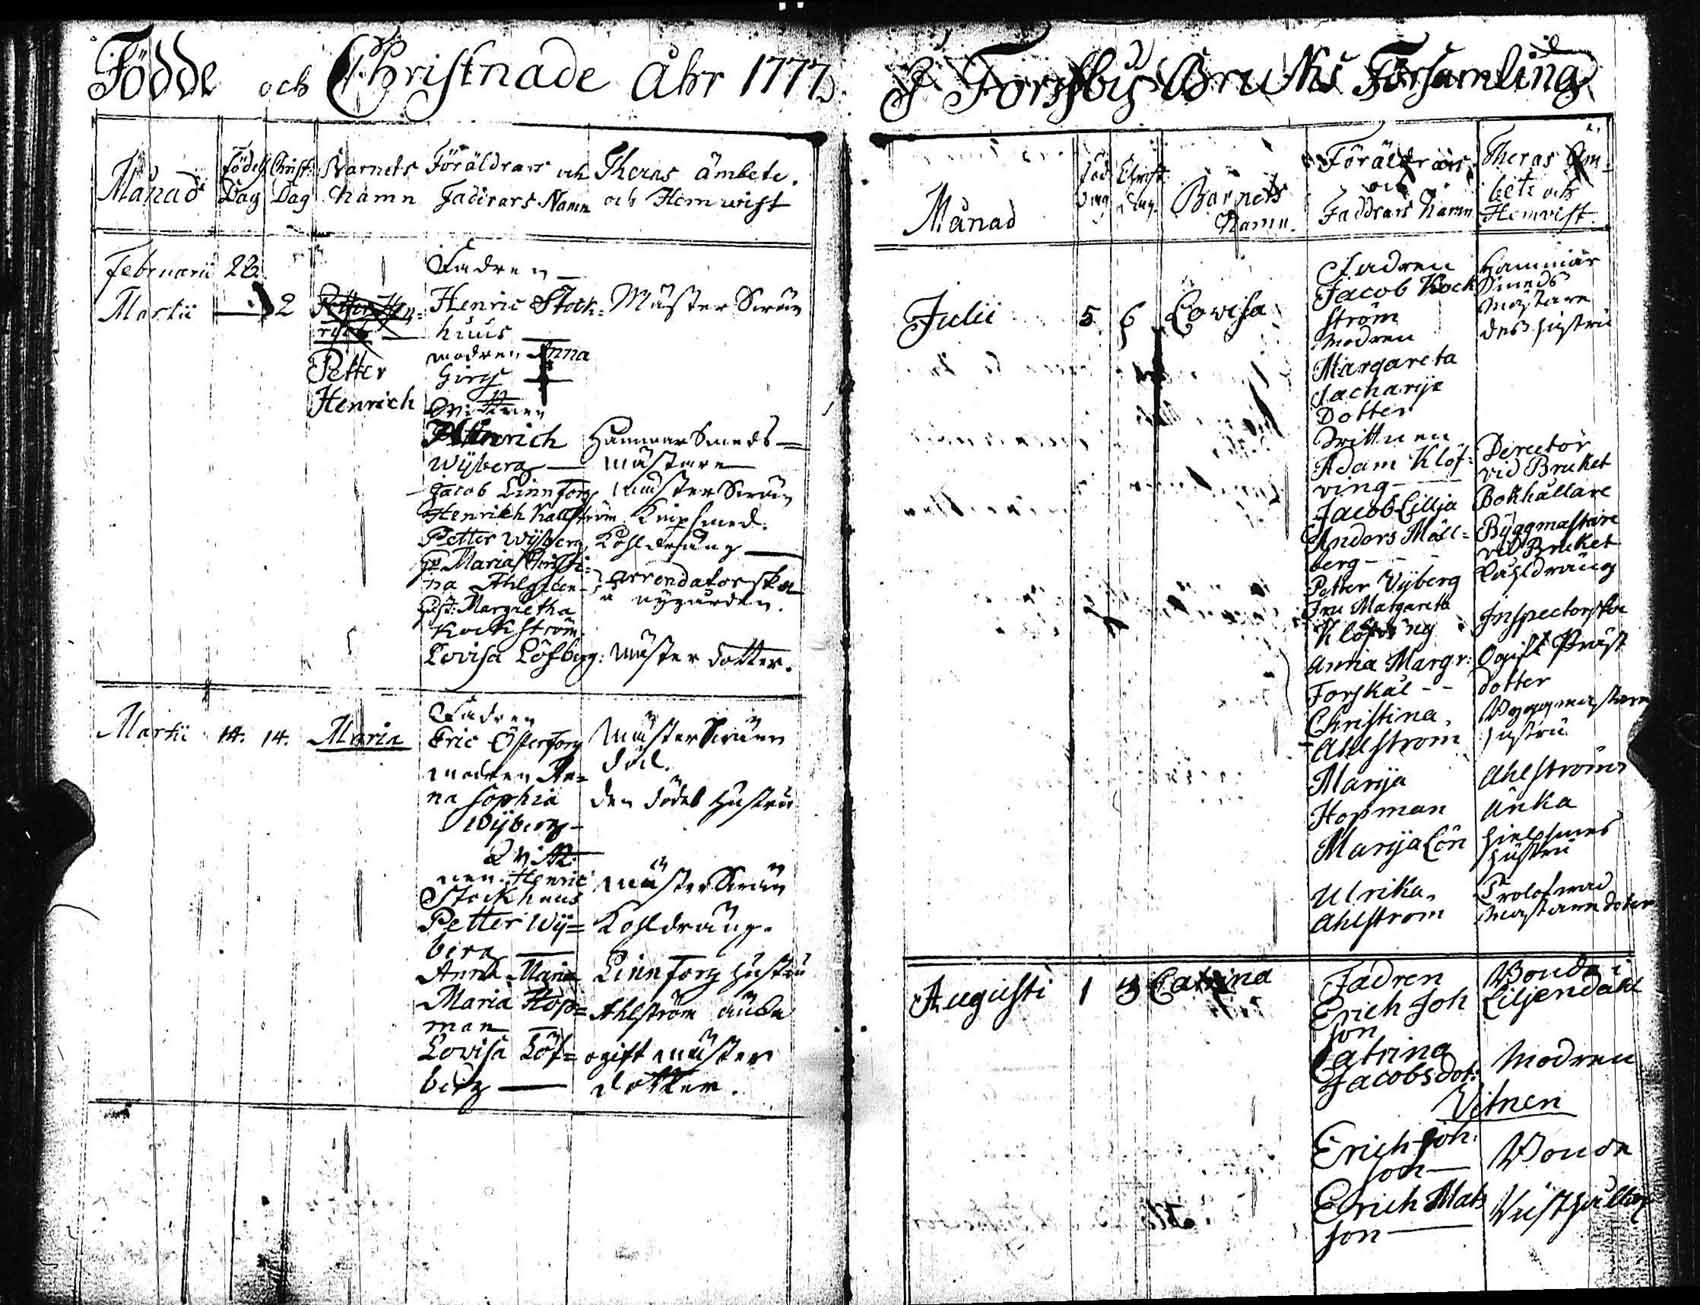 Födde och Christnade Åhr 1777.
Månad
Födels Dag
Christ: Dag
Barnets Namn
Föräldrars och Faddrars Namn
Theras ämbete och Hemwist
Februarii 28.
Martii — 2
Petter
Henrich
Fadren
Henric Stock=
huus
modren Anna
Wittnen
Henrich
Wijberg —
Jacob Linnforg
Henrich Kallström
Petter Wijberg
Maria Christi=
na Ahlgreen
Margretha
Kockström
Lovisa Löfberg:
Mäster Sven
Hammar Smeds=
mästare
Mäster Sven
Knipsmed.
Kohldräng —
arrendatorska
å nygården.
Mäster dotter.
Martii 14. 14. Maria
Fadren
Eric Österforg
modren An=
na Sophia
Wijberg
Witt=
nen. Henric
Stockhuus
Petter Wij=
berg
Anna Maria
Maria Hop=
man
Lovisa Löf=
berg —
Mäster Sven
död.
den dödes Hustru
Mäster Sven
Kohldräng.
Linnforg Hustru
Ahlström änka
ogift mäster
dotter.
I Forssby Bruks Församling
Månad
Föd Dag
Christ: Dag
Barnets Namn.
Föräldrars och Faddrars Namn
Theras Äm=
bete och
Hemvist
Julii 5 6 Lovisa
Fadren
Jacob Kock
ström
Modren
Margareta
Sacharije
Dotter
Wittnen
Adam Klöf=
ving —
Jacob Lillja
Anders Mäll=
berg —
Petter Wijberg
Fru Margareta
Klöfving
Anna Margr:
Forskål - -
Christina
Ahlström
Marija
Hopman
Marija Lön
Ulrika
Ahlström
Hammar
Smeds
Mästare
des Hustru
Derector
vid Bruket
Bokhållare
Byggmästare
vid Bruket
Kåhldräng
Inspectorska
Ogift Präst
dotter
Byggmästare
Hustru
Ahlströms
Änka
Hielpsmes
Hustru
Mästare doter
Augusti 1 3 Catrina
Fadren
Erich Joh
son
Catrina
Jacobsdot:
Bonde i
Liljendahl
Modren
Vitnen
Erich Joh:
son —
Erich Mats
son —
Bonde